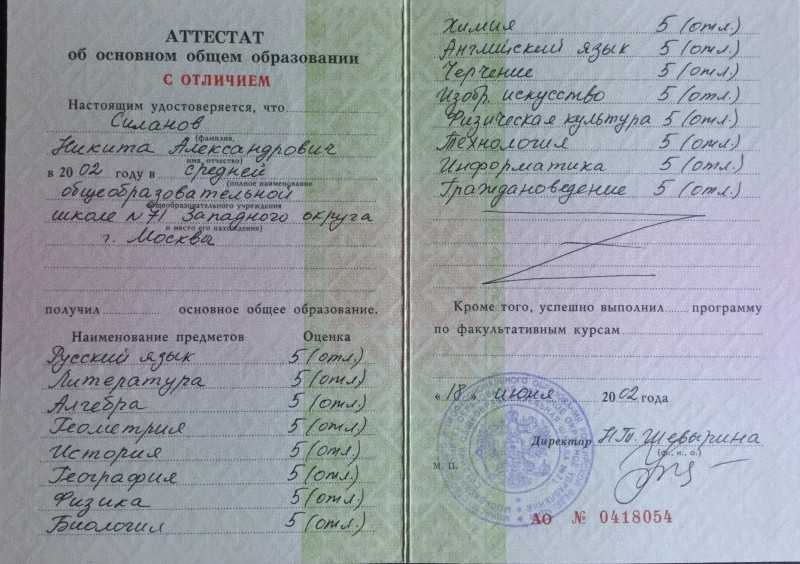 АТТЕСТАТ
об основном общем образовании
С ОТЛИЧИЕМ
Настоящим удостоверяется, что
Силанов
(фамилия,
Никита Александрович
имя, отчество)
в 2002 году в средней
(полное наименование
общеобразовательной
общеобразовательного учреждения
школе №71 Западного округа
и место его нахождения)
г. Москва
получил основное общее образование.
Наименование предметов Оценка
Русский язык 5 (отл.)
Литература 5 (отл.)
Алгебра 5 (отл.)
Геометрия 5 (отл.)
История 5 (отл.)
География 5 (отл.)
Физика 5 (отл.)
Биология 5 (отл.)
Химия 5 (отл.)
Английский язык 5 (отл.)
Черчение 5 (отл.)
Изобр. искусство 5 (отл.)
Физическая культура 5 (отл.)
Технология 5 (отл.)
Информатика 5 (отл.)
Граждановедение 5 (отл.)
Кроме того, успешно выполнил программу
по факультативным курсам
"18" июня 2002 года
Директор Н.Т. Шевырина
(ф., и., о.)
М. П.
АО № 0418054